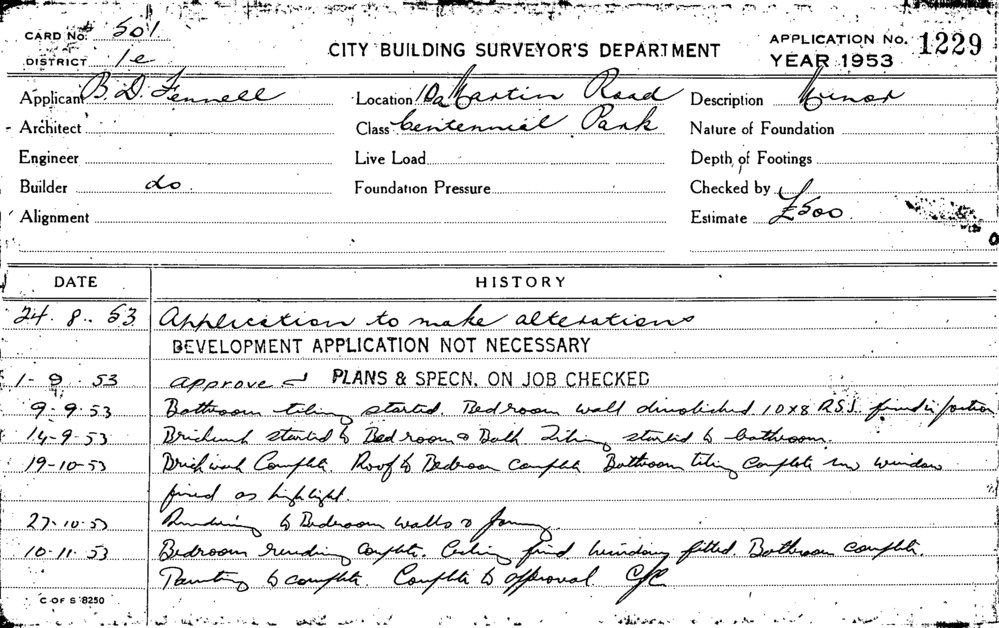 CARD No. # 501
DISTRICT 1e
CITY BUILDING SURVEYOR'S DEPARTMENT
APPLICATION No. 1229
YEAR 1953
Applicant B. D. Fennell
Location 10a Martin Road
Description Minor
Architect
Class Centennial Park
Nature of Foundation
Engineer
Live Load
Depth of Footings
Builder do
Foundation Pressure
Checked by
Alignment
Estimate £500
DATE HISTORY
24. 8. 53 Application to make alterations
DEVELOPMENT APPLICATION NOT NECESSARY
1-9. 53 approved PLANS & SPECN. ON JOB CHECKED
9-9-53 Bathroom tiling started. Bedroom wall dimolished 10x8 R.S.J. fixed in portion
14-9-53 Brickwork started to Bedroom & Bath Tiling started to bathroom.
19-10-53 Brickwork Complete Roof to Bedroom complete Bathroom tiling complete new window
fixed as highlight.
27-10-53 Rendering to Bedroom walls &
10-11-53 Bedroom rendering complete. Ceiling fixed windows fitted. Bathroom complete.
Painting to complete. Complete to approval
C OF S 8250